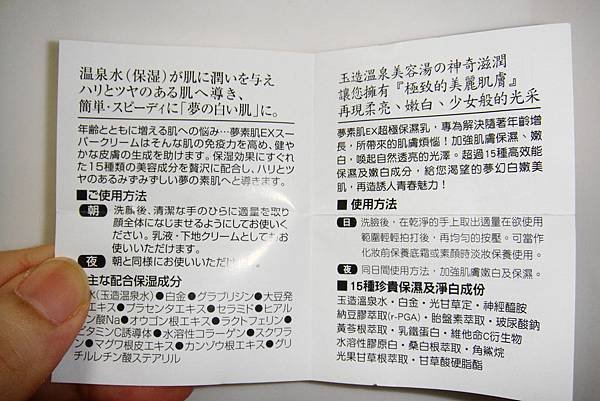 温泉水(保湿)が肌に潤いを与え
ハリとツヤのある肌へ導き、
簡単・スピーディに「夢の白い肌」に。
年齢とともに増える肌への悩み…夢素肌EXスー
パークリームはそんな肌の免疫力を高め、健や
かな皮膚の生成を助けます。保湿効果にすぐれ
た15種類の美容成分を贅沢に配合し、ハリとツ
ヤのあるみずみずしい夢の素肌へと導きます。
■ご使用方法
朝 洗顔後、清潔な手のひらに適量を取り
顔全体になじませるようにしてお使いく
ださい。乳液・下地クリームとしてもお
使いいただけます。
夜 朝と同様にお使いいただけます。
主な配合保湿成分
水(玉造温泉水)●白金●グラブリジン●大豆発
エキス●プラセンタエキス●セラミド●ヒアル
ン酸Na●オウゴン根エキス●ラクトフェリン●
タミンC誘導体●水溶性コラーゲン●スクワラ
ン●マグワ根皮エキス●カンゾウ根エキス●グリ
チルレチン酸ステアリル
玉造溫泉美容湯の神奇滋潤
讓您擁有『極致的美麗肌膚』
再現柔亮、嫩白、少女般的光采
夢素肌EX超極保濕乳，專為解決隨著年齡增
長，所帶來的肌膚煩惱！加強肌膚保濕、嫩
白，喚起自然透亮的光澤。超過15種高效能
保濕及嫩白成分，給您渴望的夢幻白嫩美
肌，再造誘人青春魅力！
■ 使用方法
日 洗臉後，在乾淨的手上取出適量在欲使用
範圍輕輕拍打後，再均勻的按壓。可當作
化妝前保養底霜或素顏時淡妝保養使用。
夜 同日間使用方法，加強肌膚嫩白及保濕。
■ 15種珍貴保濕及淨白成份
玉造溫泉水・白金・光甘草定・神經醯胺
納豆膠萃取(r-PGA)・胎盤素萃取・玻尿酸鈉
黃芩根萃取・乳鐵蛋白・維他命C衍生物
水溶性膠原白・桑白根萃取・角鯊烷
光果甘草根萃取・甘草酸硬脂酯